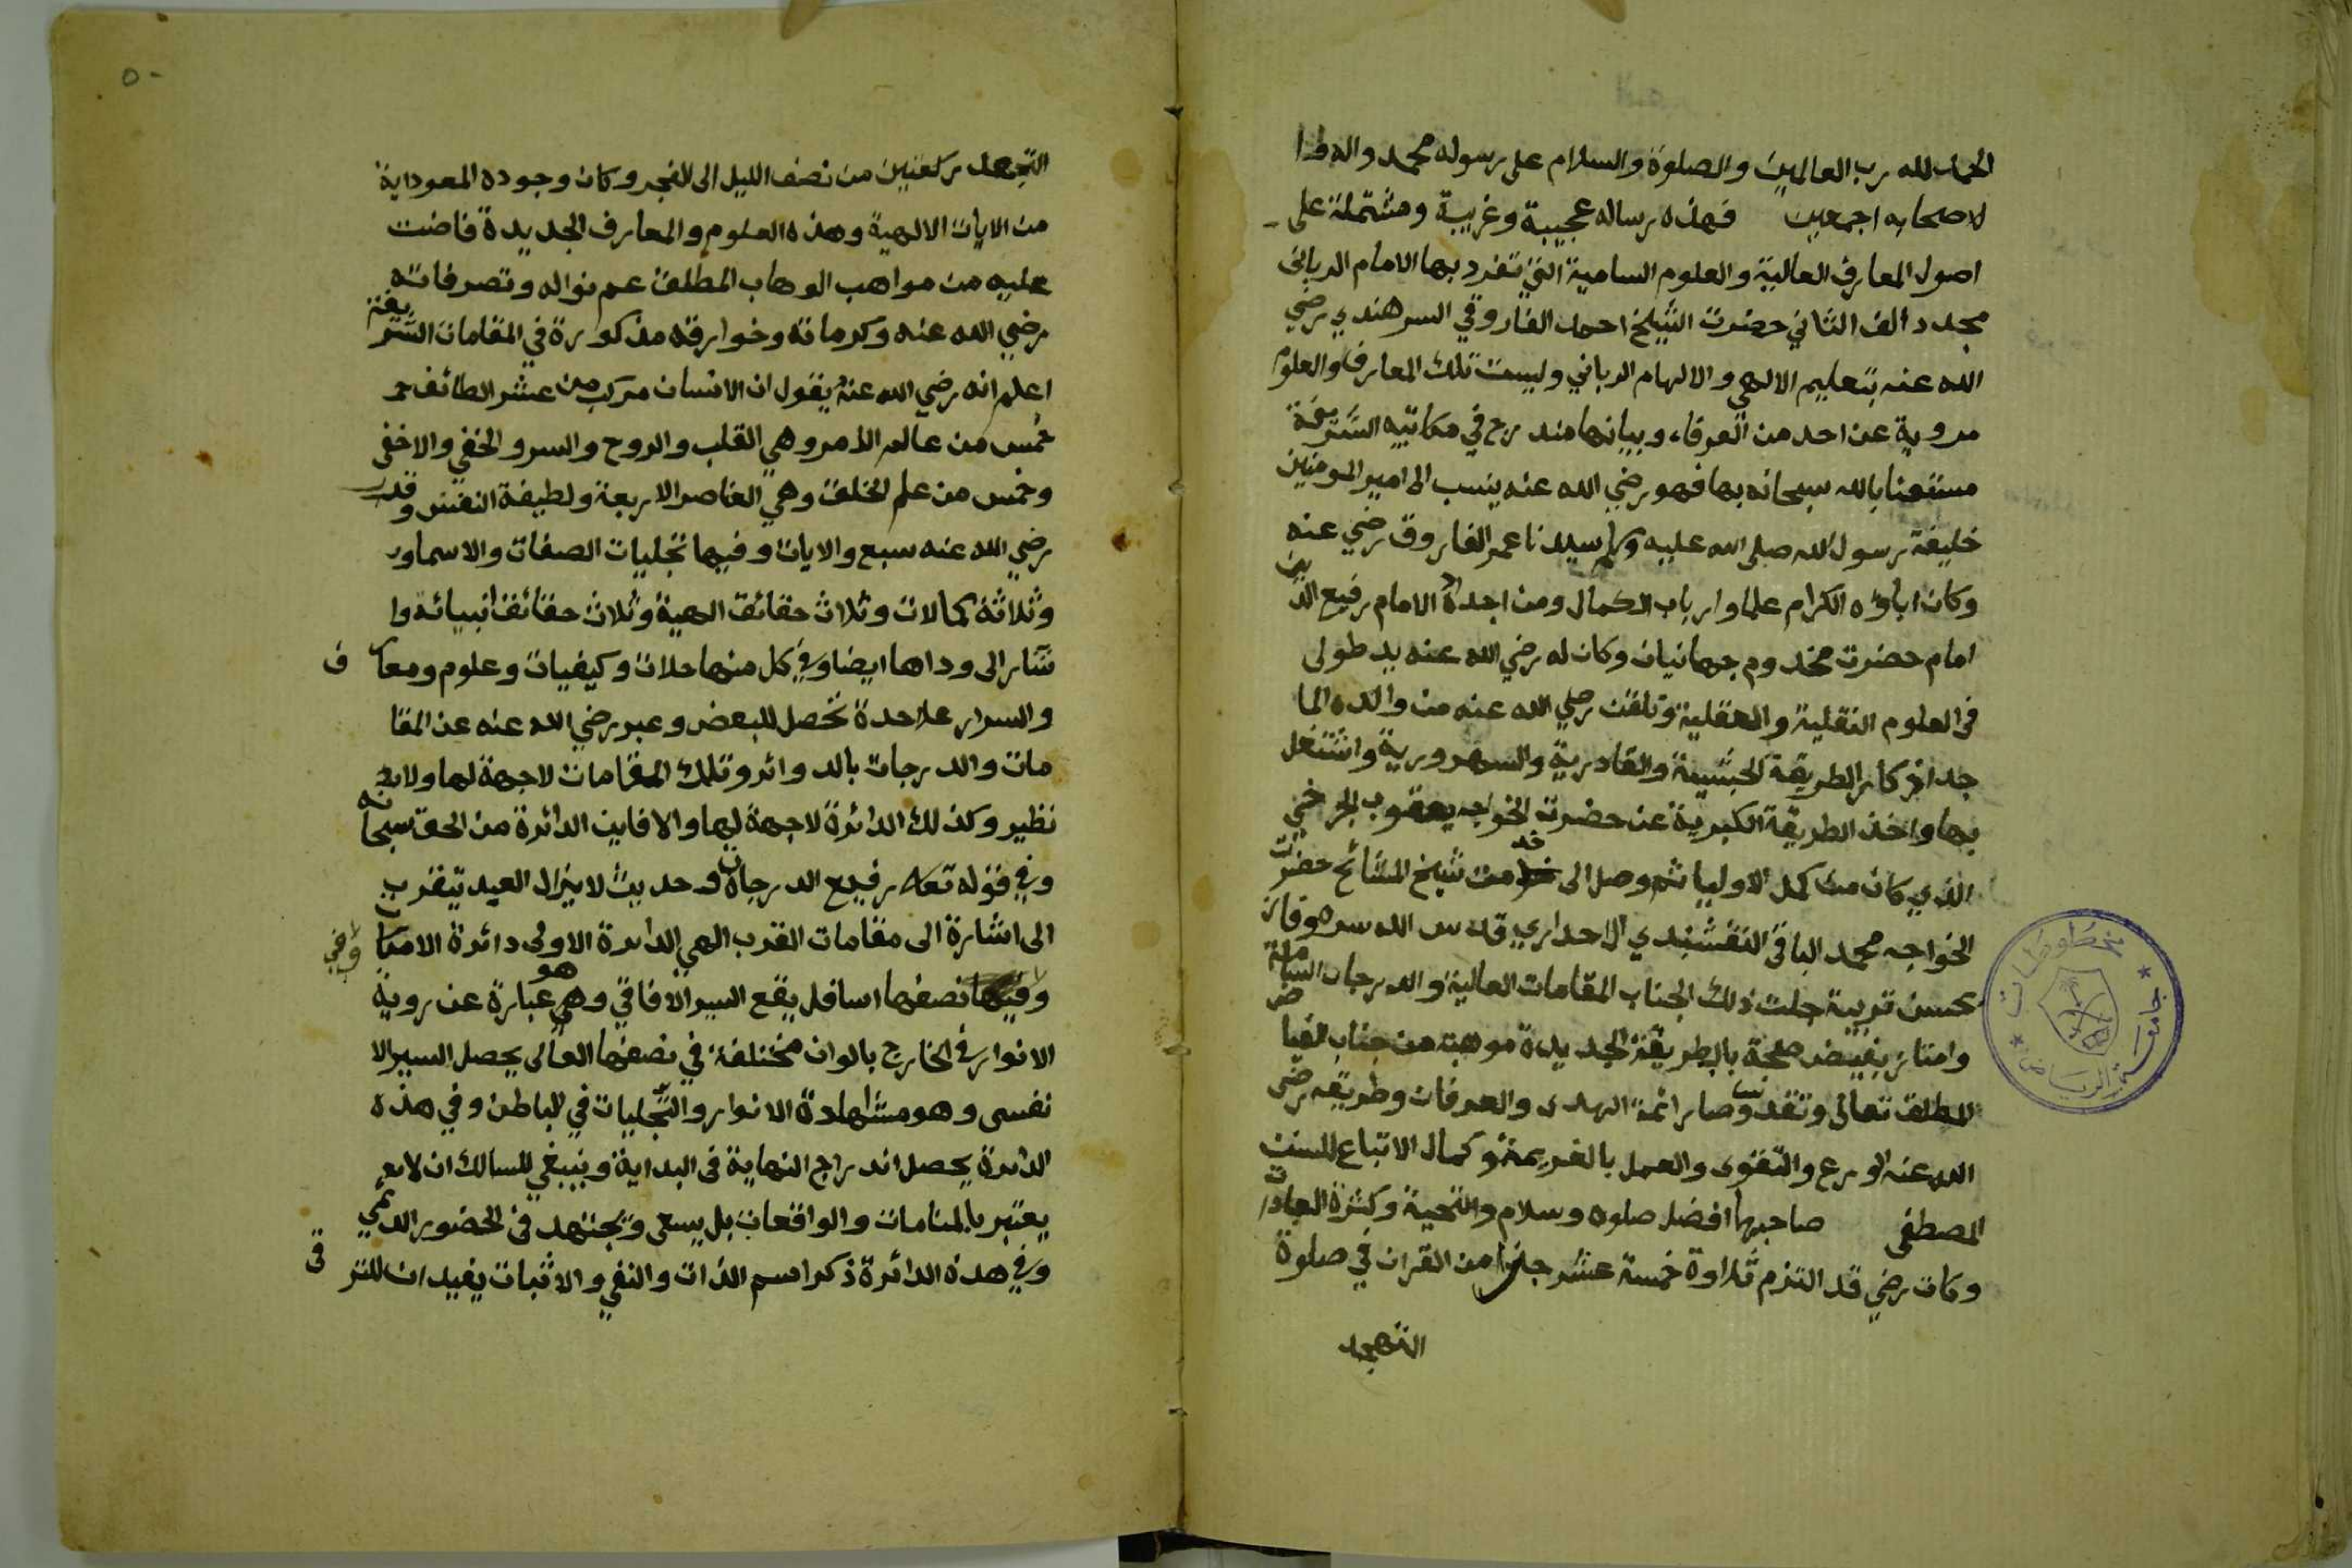 الحمد لله رب العالمين والصلوة والسلام على رسوله محمد واله وا
لاصحابه اجمعين فهذه رساله عجيبة وغريبة ومشتملة على
اصول المعارف العالية والعلوم السامية التي تفرد بها الامام الرباني
مجدد ألف الثاني حضرت الشيخ احمد الفاروقي السرهندي رضي
الله عنه بتعليم الالهي والالهام الرباني وليست تلك المعارف والعلوم
مروية عن احد من العرفاء وبيانها مندرج في مكاتيبه الشريفة
مستعينا بالله سبحانه بها فهو رضي الله عنه ينسب الى امير المومنين
خليفة رسول الله صلى الله عليه وسلم سيدنا عمر الفاروق رضي عنه
وكان اباؤه الكرام علما وارباب الكمال ومن اجداده الامام رفيع الدين
امام حضرت مخدوم جهانيان وكان له رضي الله عنه يد طولى
في العلوم النقلية والعقلية وتلقن رضي الله عنه من والده الما
جد اذكار الطريقة الچشتية والقادرية والسهروردية واشتغل
بها واخذ الطريقة الكبروية عن حضرت الخواجه يعقوب الچرخي
الذي كان من كمل الاوليا ثم وصل الى خدمت شيخ المشائح حضرت
الخواجه محمد الباقي النقشبندي الاحراري قدس الله سره وفاز
بحسن تربية ذلك الجناب المقامات العالية والدرجات السامية
وامتاز بفيض صحبة بالطريقة الجديدة موهبة من جناب الفيا
ض المطلق تعالى وتقدس وصار ائمة الهدى والعرفان وطريقه رضي
الله عنه الورع والتقوى والعمل بالعزيمة وكمال الاتباع للسنت
المصطفى صاحبها افضل صلوه وسلام والتحية وكثرة العبادات
وكان رضي قد التزم تلاوة خمسة عشر جزا من القران في صلوة
التهجد
٥٠
التهجد ركعتين من نصف الليل الى الفجر وكان وجوده المعود اية
من الايات الالهية وهذه العلوم والمعارف الجديدة فاضت
عليه من مواهب الوهاب المطلق عم نواله وتصرفاته
رضي الله عنه وكرماته وخوارقه مذكورة في المقامات الشريفة
اعلم انه رضي الله عنه يقول ان الانسان مركب من عشر الطائف
خمس من عالم الامر وهي القلب والروح والسر والخفي والاخفى
وخمس من علم الخلق وهي العناصر الاربعة ولطيفة النفس وقدر
رضي الله عنه سبع والايات وفيها تجليات الصفات والاسما
وثلاثة كمالات وثلاث حقائق الهية وثلاث حقائق انبيائه وا
شار الى وراها ايضا وفي كل منها حلات وكيفيات وعلوم ومعارف
والسرار علاحدة تحصل للبعض وعبر رضي الله عنه عن المقا
مات والدرجات بالدوائر وتلك المقامات لاجهة لها ولا
نظير وكذلك الدائرة لاجهة لها والا فاين الدائرة من الحق سبحانه
وفي قوله تعالى رفيع الدرجات وحديث لا يزال العبد يتقرب
الى اشارة الى مقامات القرب الهي الدائرة الاولى دائرة الامكان
وفي نصفها اسافل يقع السير الافاقي وهو عبارة عن روية
الانوار في الخارج بالوان مختلفة في نصفها العالى يحصل السير الا
نفسى وهو مشاهدة الانوار والتجليات في الباطن وفي هذه
الدائرة يحصل اندراج النهاية في البداية وينبغي للسالك ان لا
يعتبر بالمنامات والواقعات بل يسعى ويجتهد في الحضور الدائمي
وفي هذه الدائرة ذكر اسم الذات والنفي والاثبات يفيدان للترقى
مخطوطات
جامعة الرياض